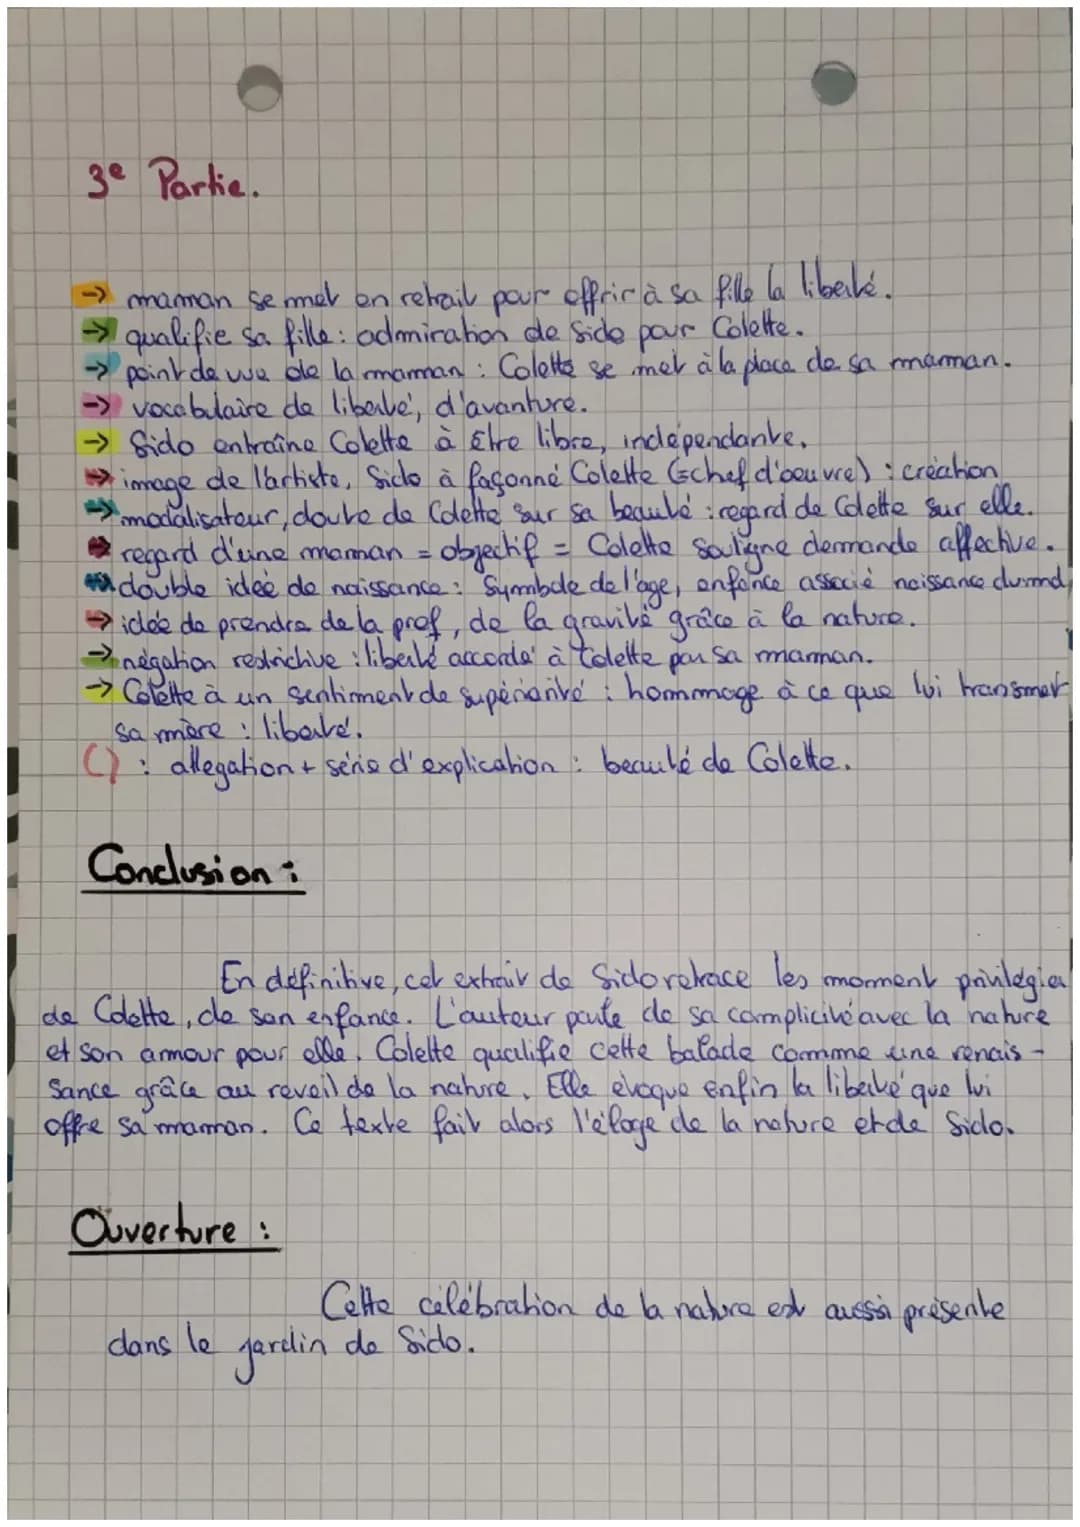 3e Partie.
→ maman se met en retrait pour offrir à sa fille la liberté.
→ qualifie sa fille : admiration de Sido pour Colette.
→ point de vue de la maman : Colette se met à la place de sa maman.
→ vocabulaire de liberté, d'avanture.
→ Sido entraîne Colette à être libre, indépendante.
→ image de l'artiste, Sido à façonné Colette (=chef d'oeuvre) : création
→ modalisateur, doute de Colette sur sa beauté : regard de Colette sur elle.
→ regard d'une maman = objectif = Colette souligne demande affective.
→ double idée de naissance : Symbole de l'âge, enfance associé naissance du md
→ idée de prendre de la prof, de la gravité grâce à la nature.
→ négation restrictive : liberté accordé à Colette par sa maman.
→ Colette à un sentiment de supériorité : hommage à ce que lui transmet
sa mère : liberté.
() : allegation + série d'explication : beauté de Colette.
Conclusion :
En définitive, cet extrait de Sido retrace les moment privilégier
de Colette, de son enfance. L'auteur parle de sa complicité avec la nature
et son amour pour elle. Colette qualifie cette balade comme une renais-
sance grâce au réveil de la nature. Elle évoque enfin la liberté que lui
offre sa maman. Ce texte fait alors l'éloge de la nature et de Sido.
Ouverture :
Cette célébration de la nature est aussi présente
dans le jardin de Sido.